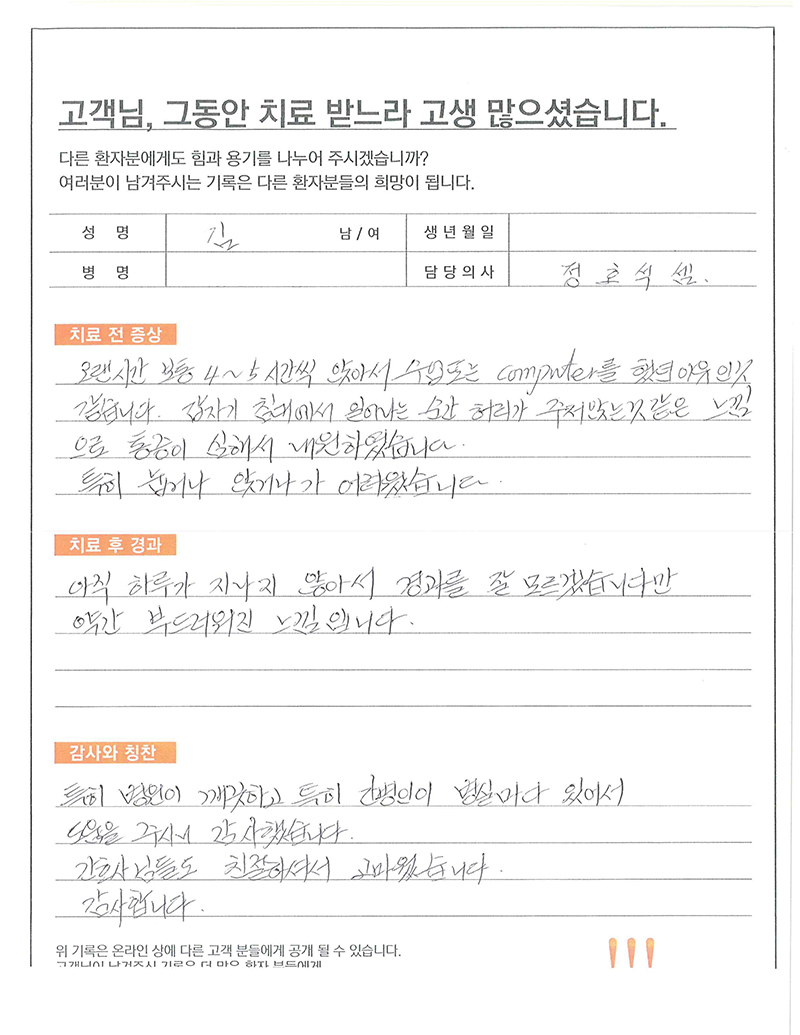 고객님, 그동안 치료 받느라 고생 많으셨습니다.
다른 환자분에게도 힘과 용기를 나누어 주시겠습니까?
여러분이 남겨주시는 기록은 다른 환자분들의 희망이 됩니다.
성 명 김 남 / 여 생년월일
병 명 담당의사 정호석 셈.
치료 전 증상
오랜시간 보통 4~5시간씩 앉아서 수업또는 computer를 했던 이유인것
같습니다. 갑자기 침대에서 일어나는 순간 허리가 주저앉는것 같은 느낌
으로 통증이 심해서 내원하였습니다.
특히 눕거나 앉거나가 어려웠습니다.
치료 후 경과
아직 하루가 지나지 않아서 경과를 잘 모르겠습니다만
약간 부드러워진 느낌입니다.
감사와 칭찬
특히 병원이 깨끗하고 특히 간병인이 병실마다 있어서
도움을 주시니 감사했습니다.
간호사님들도 친절하셔서 고마웠습니다.
감사합니다.
위 기록은 온라인 상에 다른 고객 분들에게 공개 될 수 있습니다.
고객님이 남겨주신 기록은 더 많은 환자 분들에게